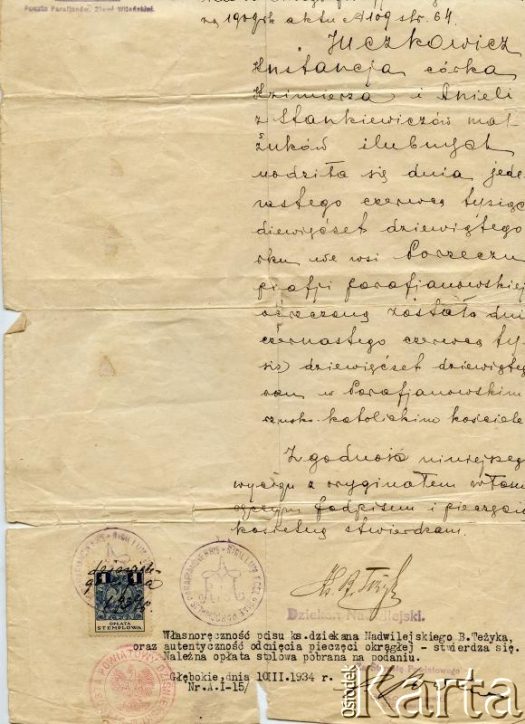 Powiatu Parafjanów, Ziemi Wileńskiej.
1909 rok aktu № 109 str. 64.
Juczkowicz
Konstancja córka
Kazimierza i Anieli
z Stankiewiczów mał
żonków ślubnych
urodziła się dnia jede
nastego czerwca tysiąc
dziewięćset dziewiątego
roku we wsi Porzeczu
parafji parafjanowskiej
ochrzczoną została dnia
czternastego czerwca ty
siąc dziewięćset dziewiątym
roku w Parafjanowskim
rzymsko katolickim kościele
Zgodność niniejszego
wyciągu z oryginałem własno
ręcznym podpisem i pieczęcią
kościelną stwierdzam.
1 1
OPŁATA
STEMPLOWA
Ks. B. Teżyk
Dziekan Nadwilejski.
Własnoręczność pdsu ks.dziekana Nadwilejskiego B.Teżyka,
oraz autentyczność odcnięcia pieczęci okrągłej - stwierdza się.
Należna opłata stplowa pobrana na podaniu.
Głębokie, dnia 10III.1934 r.
Nr.A.I-15/
Ośrodek
Karta